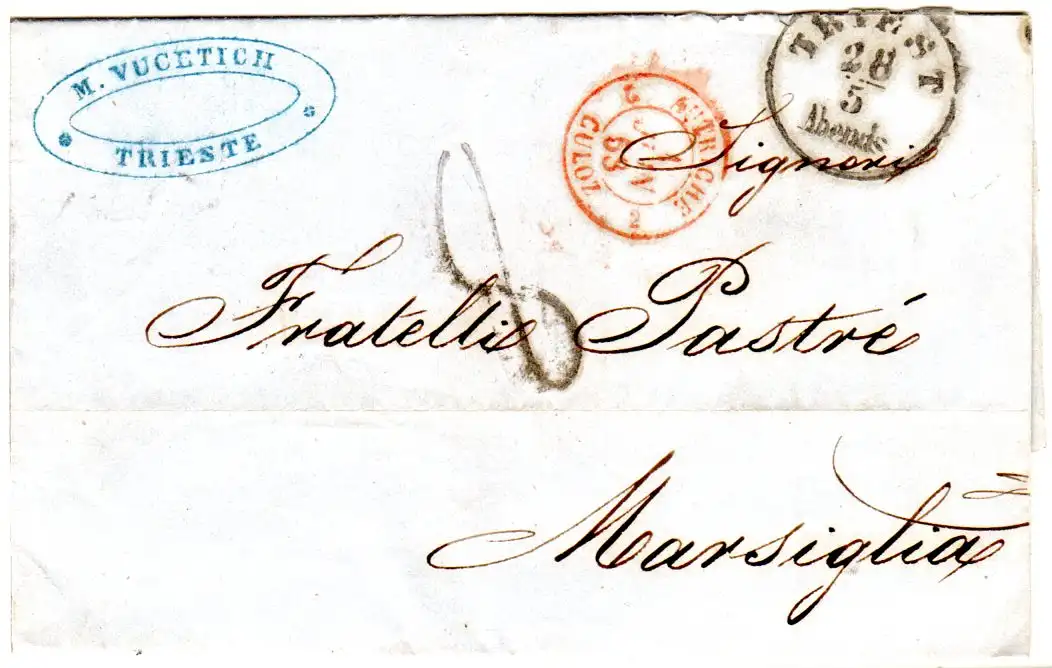 M. VUCETICH
TRIESTE
TRIEST
28
5
Abends
AUTRICHE
2 JUIN 63
2 CULOZ 2
Signori
Fratelli Pastré
8
Marsiglia